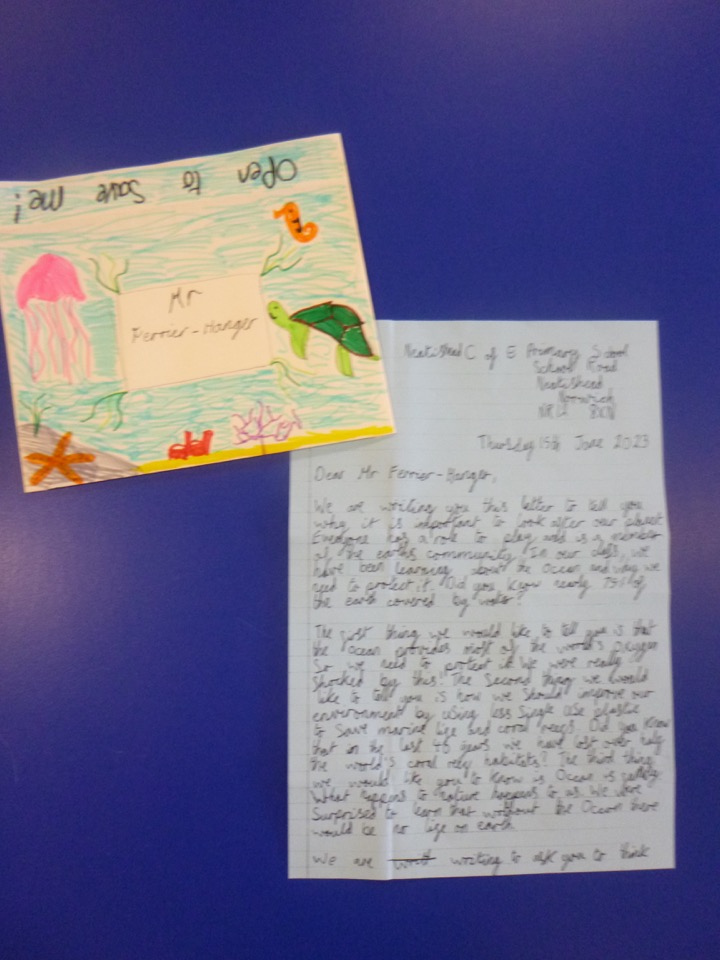 Open to save me!
Mr
Ferrier-Hanger
Neatishead C of E Primary School
School Road
Neatishead
Norwich
NR12 8XN
Thursday 15th June 2023
Dear Mr Ferrier-Hanger,
We are writing you this letter to tell you
why it is important to look after our planet
Everyone has a role to play and is a member
of the earths community. In our class, we
have been learning about the Ocean and why we
need to protect it. Did you know nearly 75% of
the earth covered by water?
The first thing we would like to tell you is that
the ocean provides most of the world's oxygen
So we need to protect it. We were really
shocked by this! The Second thing we would
like to tell you is how we should improve our
environment by using less single use plastic
to save marine life and coral reefs. Did you know
that in the last 40 years we have lost over half
the world's coral reef habitats? The third thing
we would like you to know is Ocean is
What happens to nature happens to us. We were
Surprised to learn that without the Ocean there
would be no life on earth
We are writing to ask you to think